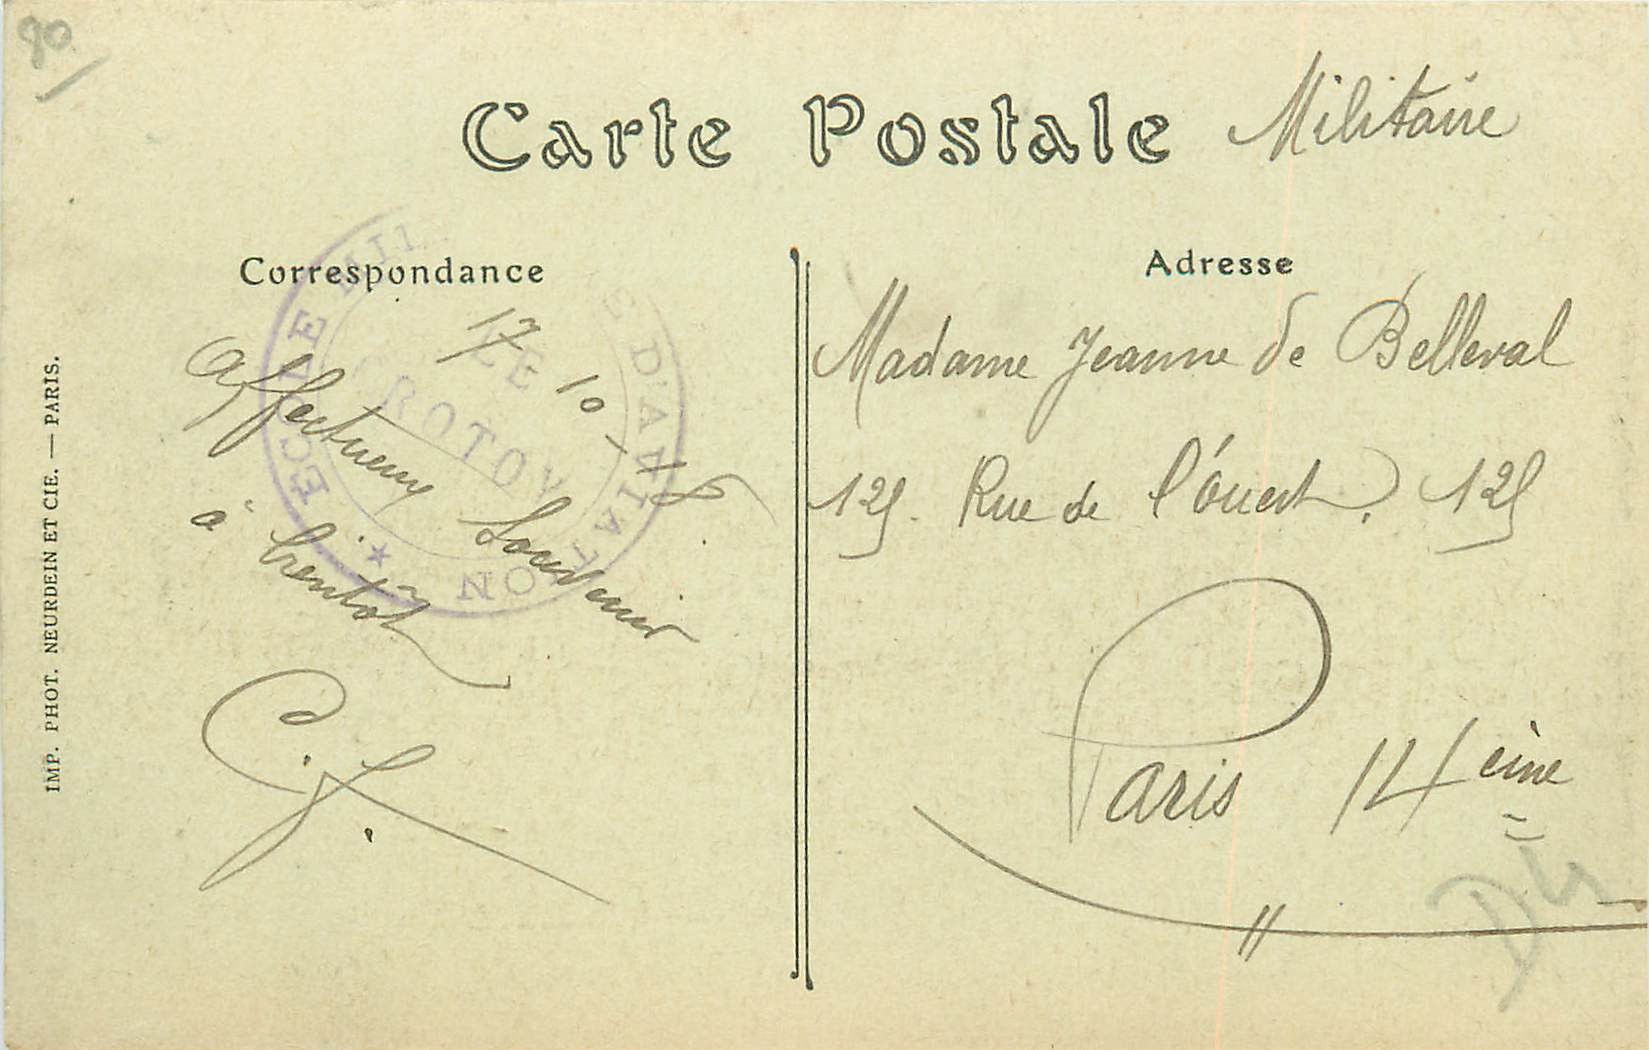 90
Carte Postale Militaire
Correspondance
17 10-18
Affectueux Souvenir
à bientôt
C. J.
ECOLE MILI E D'AVIATION
LE
CROTOY
Adresse
Madame Jeanne de Belleval
125. Rue de l'Ouest. 125
Paris 14eme
IMP. PHOT. NEURDEIN ET CIE. — PARIS.